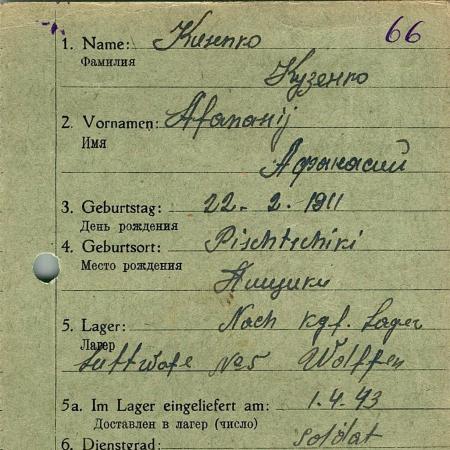 66
1. Name: Kusenko
Фамилия
Кузенко
2. Vornamen: Afanasij
Имя
Афанасий
3. Geburtstag: 22. 2. 1911
День рождения
4. Geburtsort: Pischtschiki
Место рождения
Пищики
5. Lager: Nach kgf. Lager
Лагер
Luftwafe No 5 Wolffen
5a. Im Lager eingeliefert am: 1.4.43
Доставлен в лагер (число)
6. Dienstgrad: Soldat